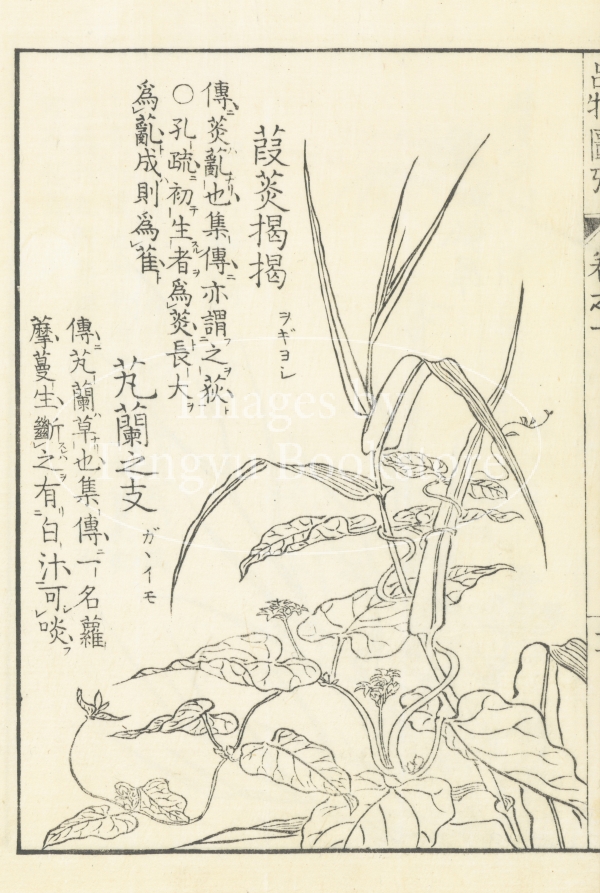 葭菼揭揭
ヲギヨシ
傳菼亂也集傳亦謂之荻
○孔疏初生者爲菼長大
爲亂成則爲萑
芄蘭之支
ガヽイモ
傳芄蘭草也集傳一名蘿
藦蔓生斷之有白汁可啖
Images by
Tengyu Bookstore